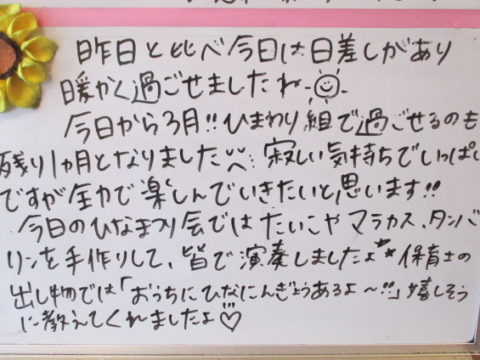 昨日と比べ今日は日差しがあり
暖かく過ごせましたね
今日から3月!!ひまわり組で過ごせるのも
残り1ヵ月となりました 寂しい気持ちでいっぱい
ですが全力で楽しんでいきたいと思います!!
今日のひなまつり会ではたいこやマラカス、タンバ
リンを手作りして、皆で演奏しましたよ 保育士の
出し物では「おうちにひなにんぎょうあるよ〜!!」嬉しそう
に教えてくれましたよ♡